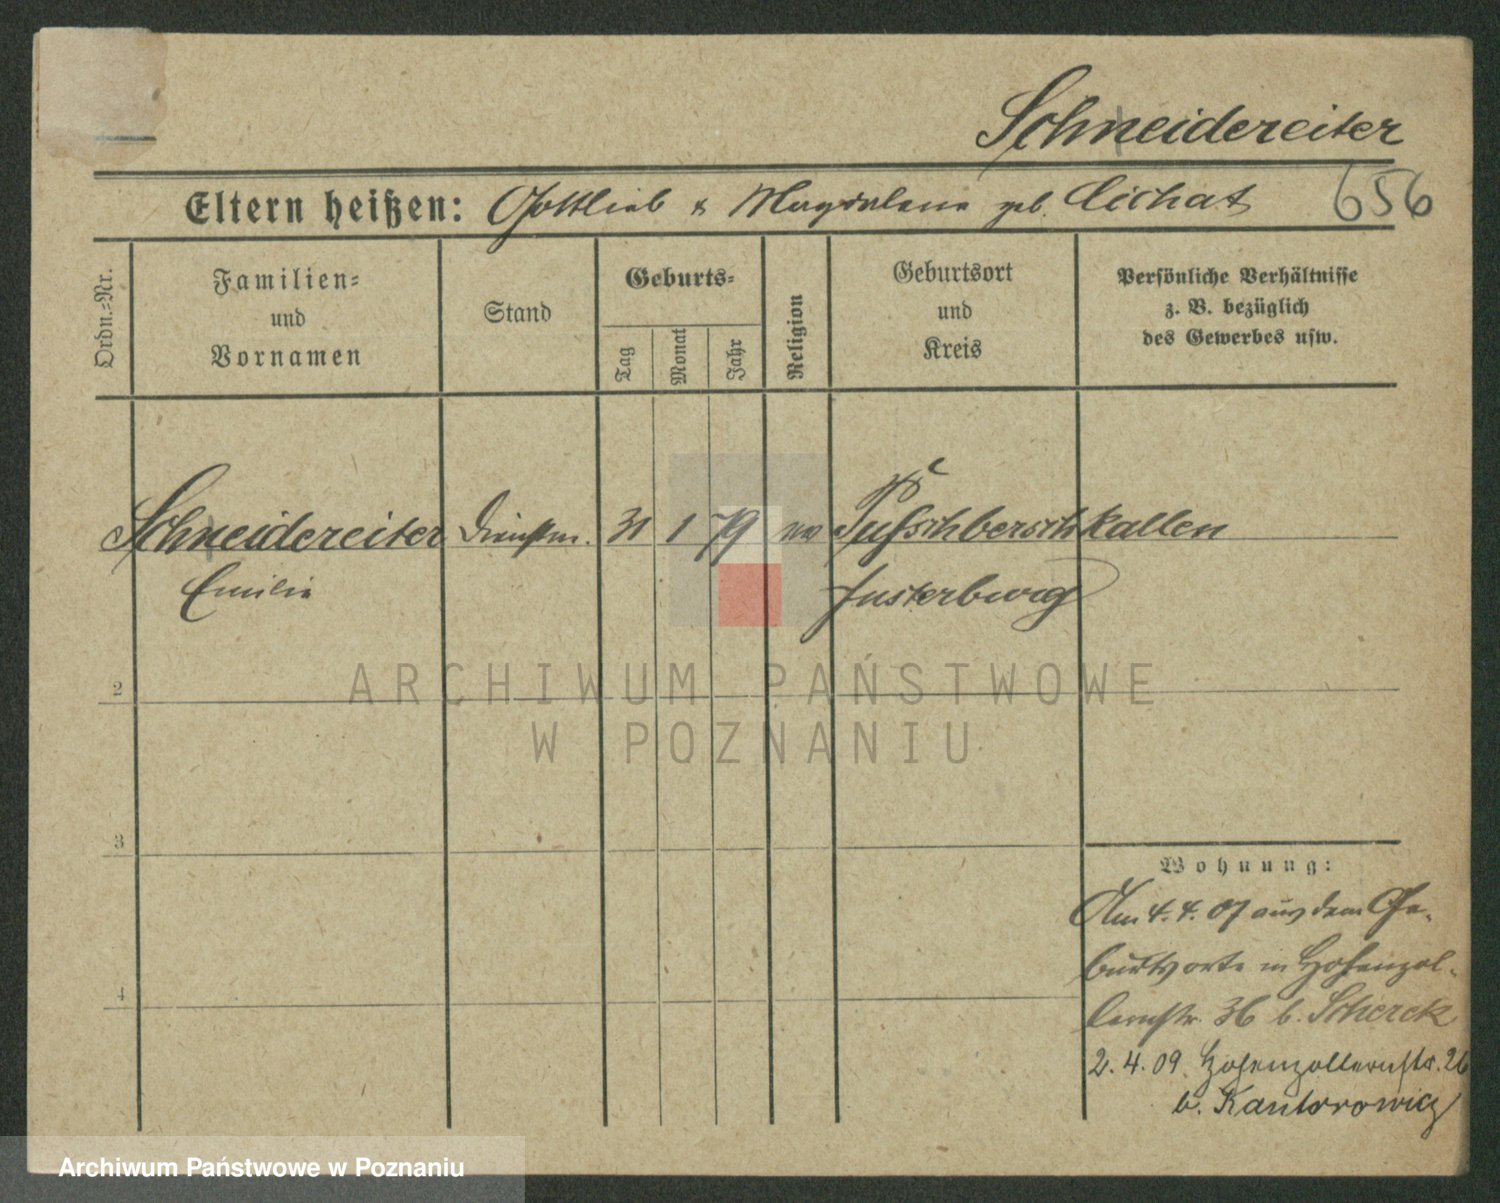 Schneidereiter
Eltern heißen: Gottlieb & Magdalena geb. Cichat 656
Ordn.-Nr.
Familien-
und
Vornamen
Stand
Geburts-
Tag
Monat
Jahr
Religion
Geburtsort
und
Kreis
Persönliche Verhältnisse
z. B. bezüglich
des Gewerbes usw.
Schneidereiter Dienstm. 31 1 79 kallen
Emilie Insterburg
2
3
4
Wohnung:
Am 4.4.07 aus dem Ge-
burtsorte in Hohenzol-
lernstr. 36 b. Scherek
2.4.09. Hohenzollernstr. 26
b. Kantorowicz
ARCHIWUM PAŃSTWOWE
W POZNANIU
Archiwum Państwowe w Poznaniu